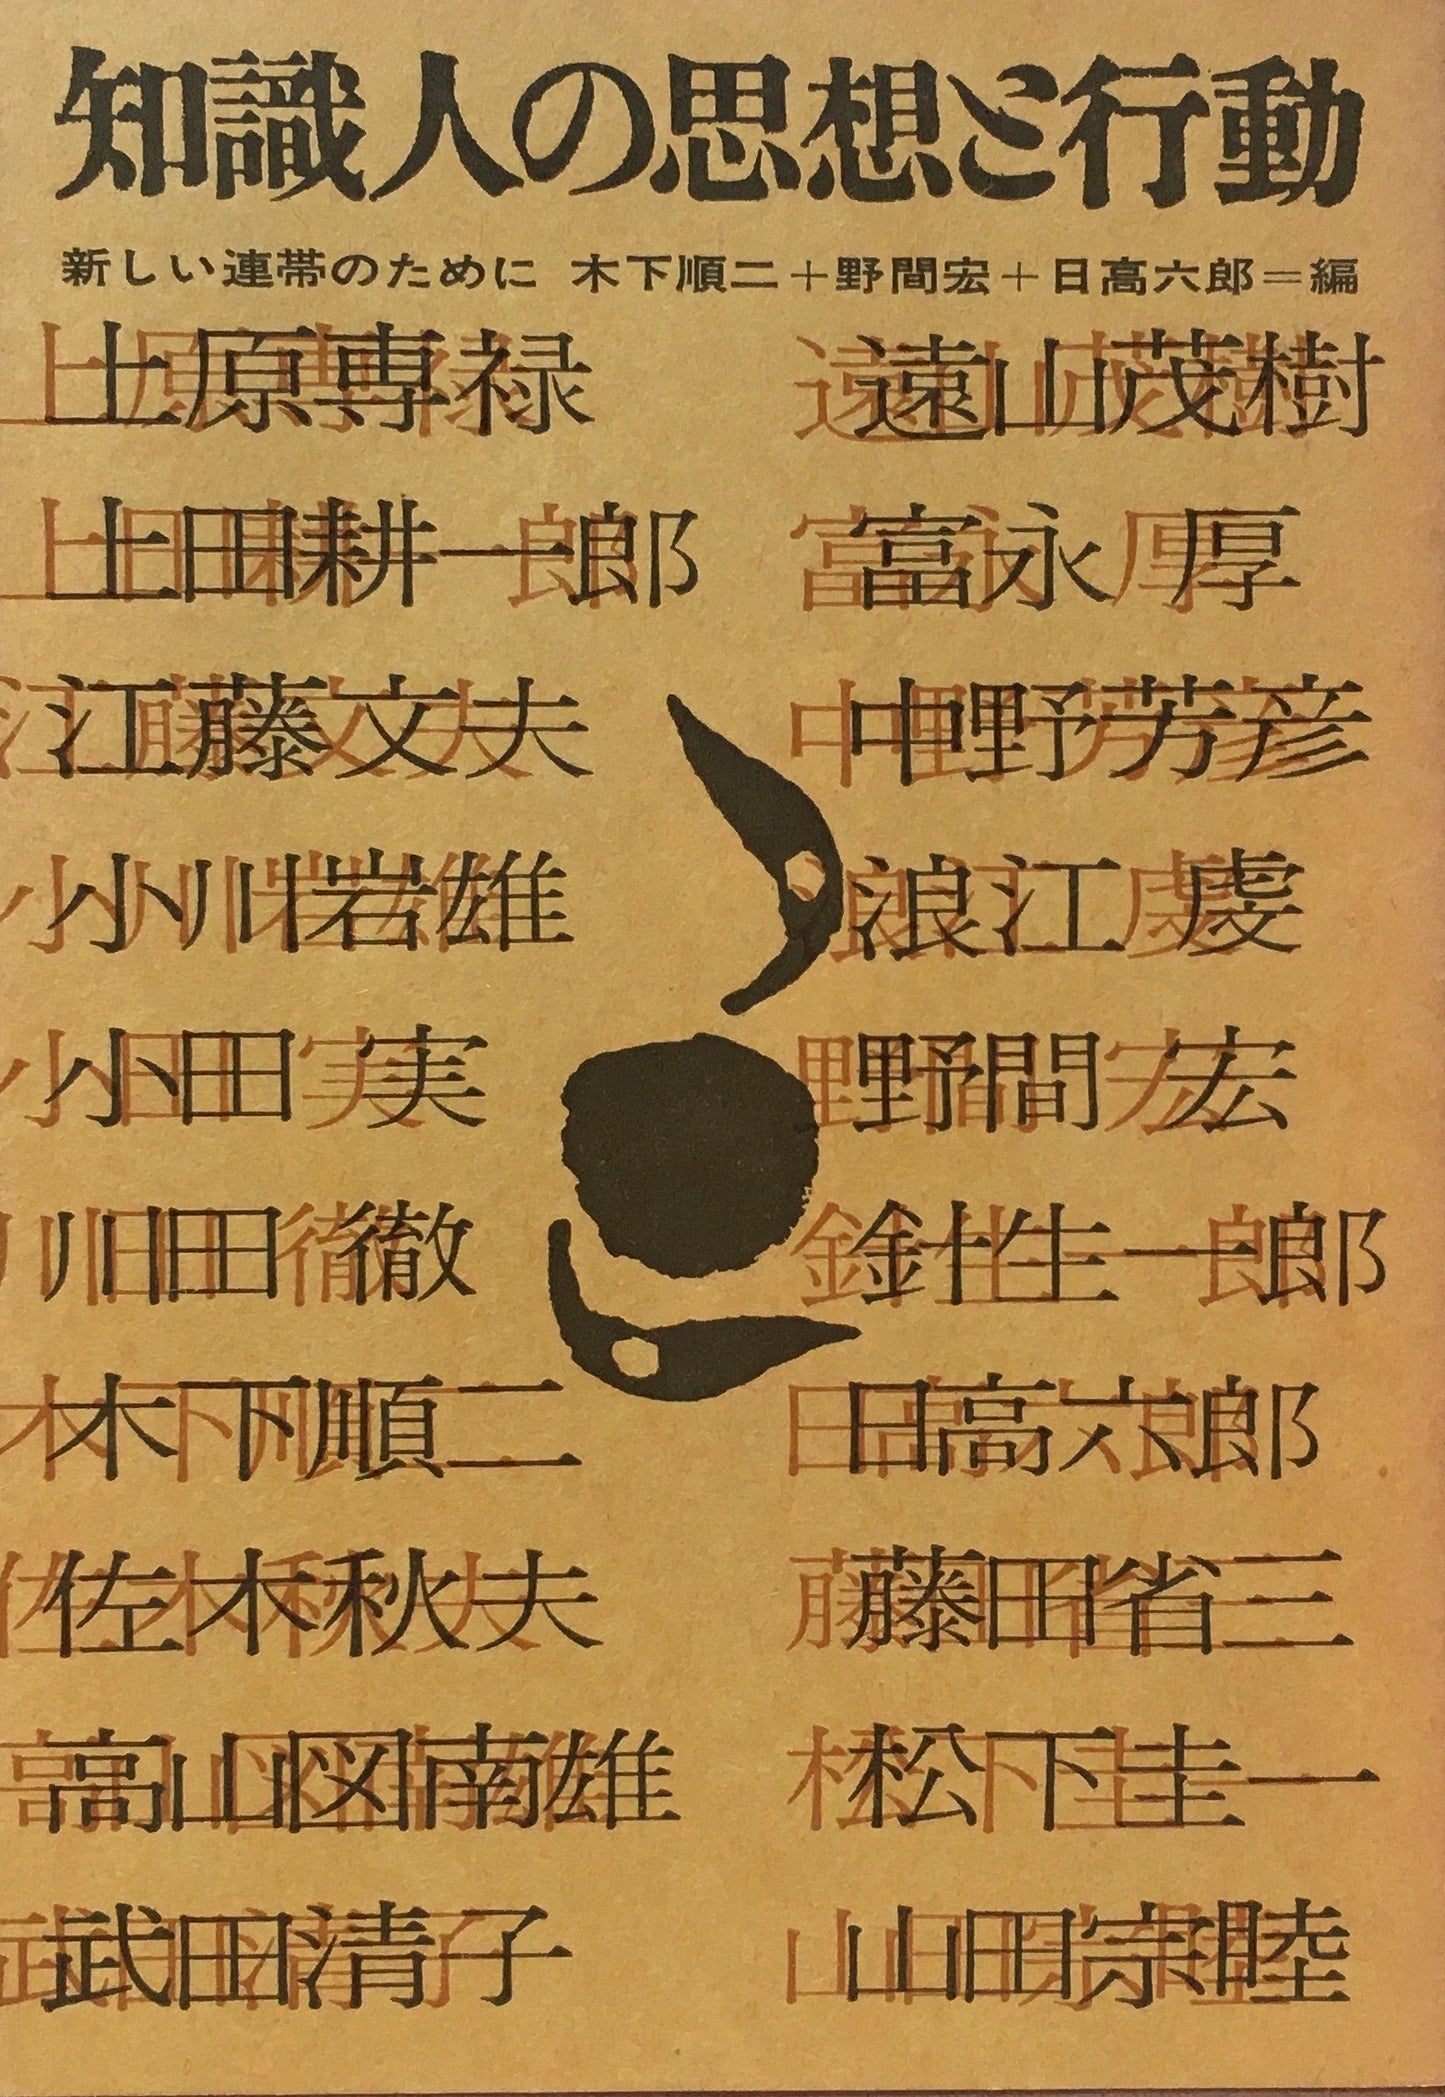 知識人の思想と行動
新しい連帯のために 木下順二＋野間宏＋日高六郎＝編
上原専禄
上田耕一郎
江藤文夫
小川岩雄
小田実
川田徹
木下順二
佐木秋夫
高山図南雄
武田清子
遠山茂樹
富永厚
中野芳彦
浪江虔
野間宏
針生一郎
日高六郎
藤田省三
松下圭一
山田宗睦